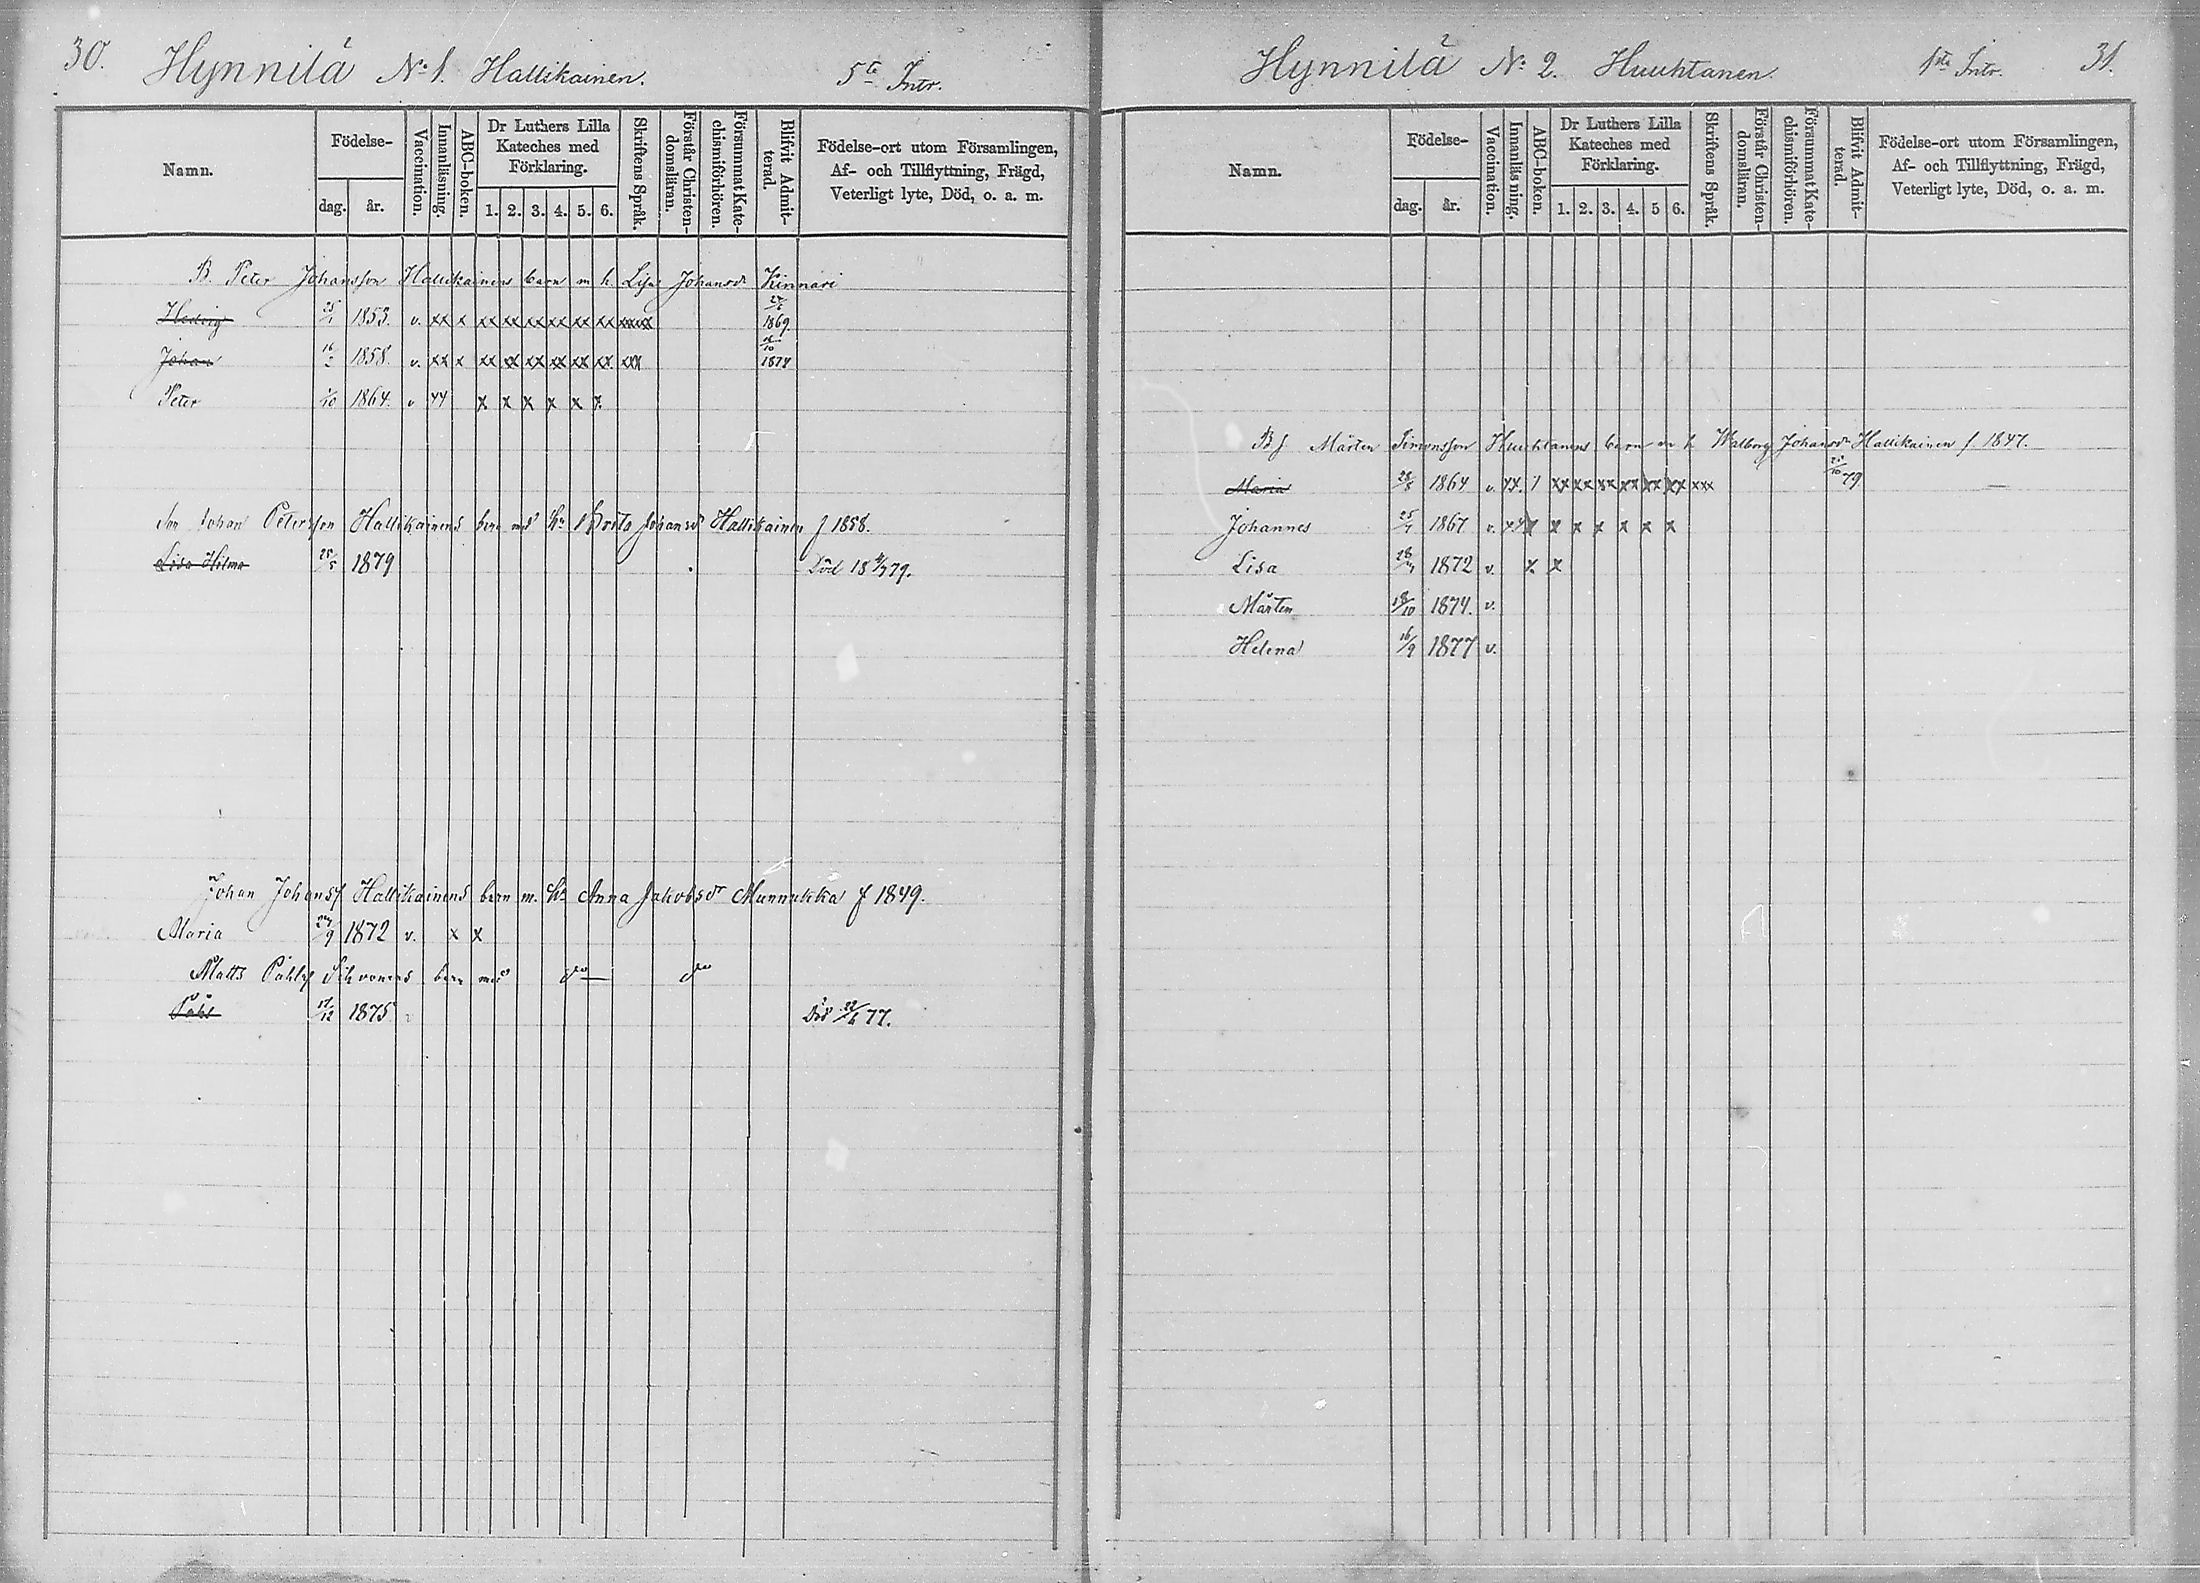 30. Hynnilä No 1. Hallikainen. 5te Intr.
Namn. Födelse- dag. år. Vaccination. Innanläsning. ABC-boken. Dr Luthers Lilla Kateches med Förklaring. 1. 2. 3. 4. 5. 6. Skriftens Språk. Förstår Christendomsläran. Försummat Katechismiförhören. Blifvit Admitterad. Födelse-ort utom Församlingen, Af- och Tillflyttning, Frägd, Veterligt lyte, Död, o. a. m.
B. Peter Johansson Hallikainens barn m h. Lisa Johansdr Kinnari
Hedvig 1853. v. xx x xx xx xx xx xx xx 1869
Johan 1858. v. xx x xx xx xx xx xx xx. xxx 1874
Peter 1864. v x x x x x x.
Son Johan Petersson Hallikainens barn med h. Brita Johansdr Hallikainen f 1858.
Lisa Hilma 1879 Död 79.
Johan Johansf Hallikainens barn m. h. Anna Jakobsdr Munnukka f 1849.
Maria 27/9 1872 v. x x
Matts Påhlsf Sihvonens barn med do do
Påhl 1875 Död 22/6 77.
Hynnilä No 2. Huuhtanen. 1sta Intr. 31.
Namn. Födelse- dag. år. Vaccination. Innanläsning. ABC-boken. Dr Luthers Lilla Kateches med Förklaring. 1. 2. 3. 4. 5 6. Skriftens Språk. Förstår Christendomsläran. Försummat Katechismiförhören. Blifvit Admitterad. Födelse-ort utom Församlingen, Af- och Tillflyttning, Frägd, Veterligt lyte, Död, o. a. m.
Bf Mårten Simonsson Huuhtanens barn m h Walborg Johansdr Hallikainen f. 1847.
Maria 1864 v. xx. xx xx xx xx xx xx xxx 79
Johannes 1867 v. x x x x x x
Lisa 1872 v. x x
Mårten 18/10 1874. v.
Helena 16/9 1877 v.